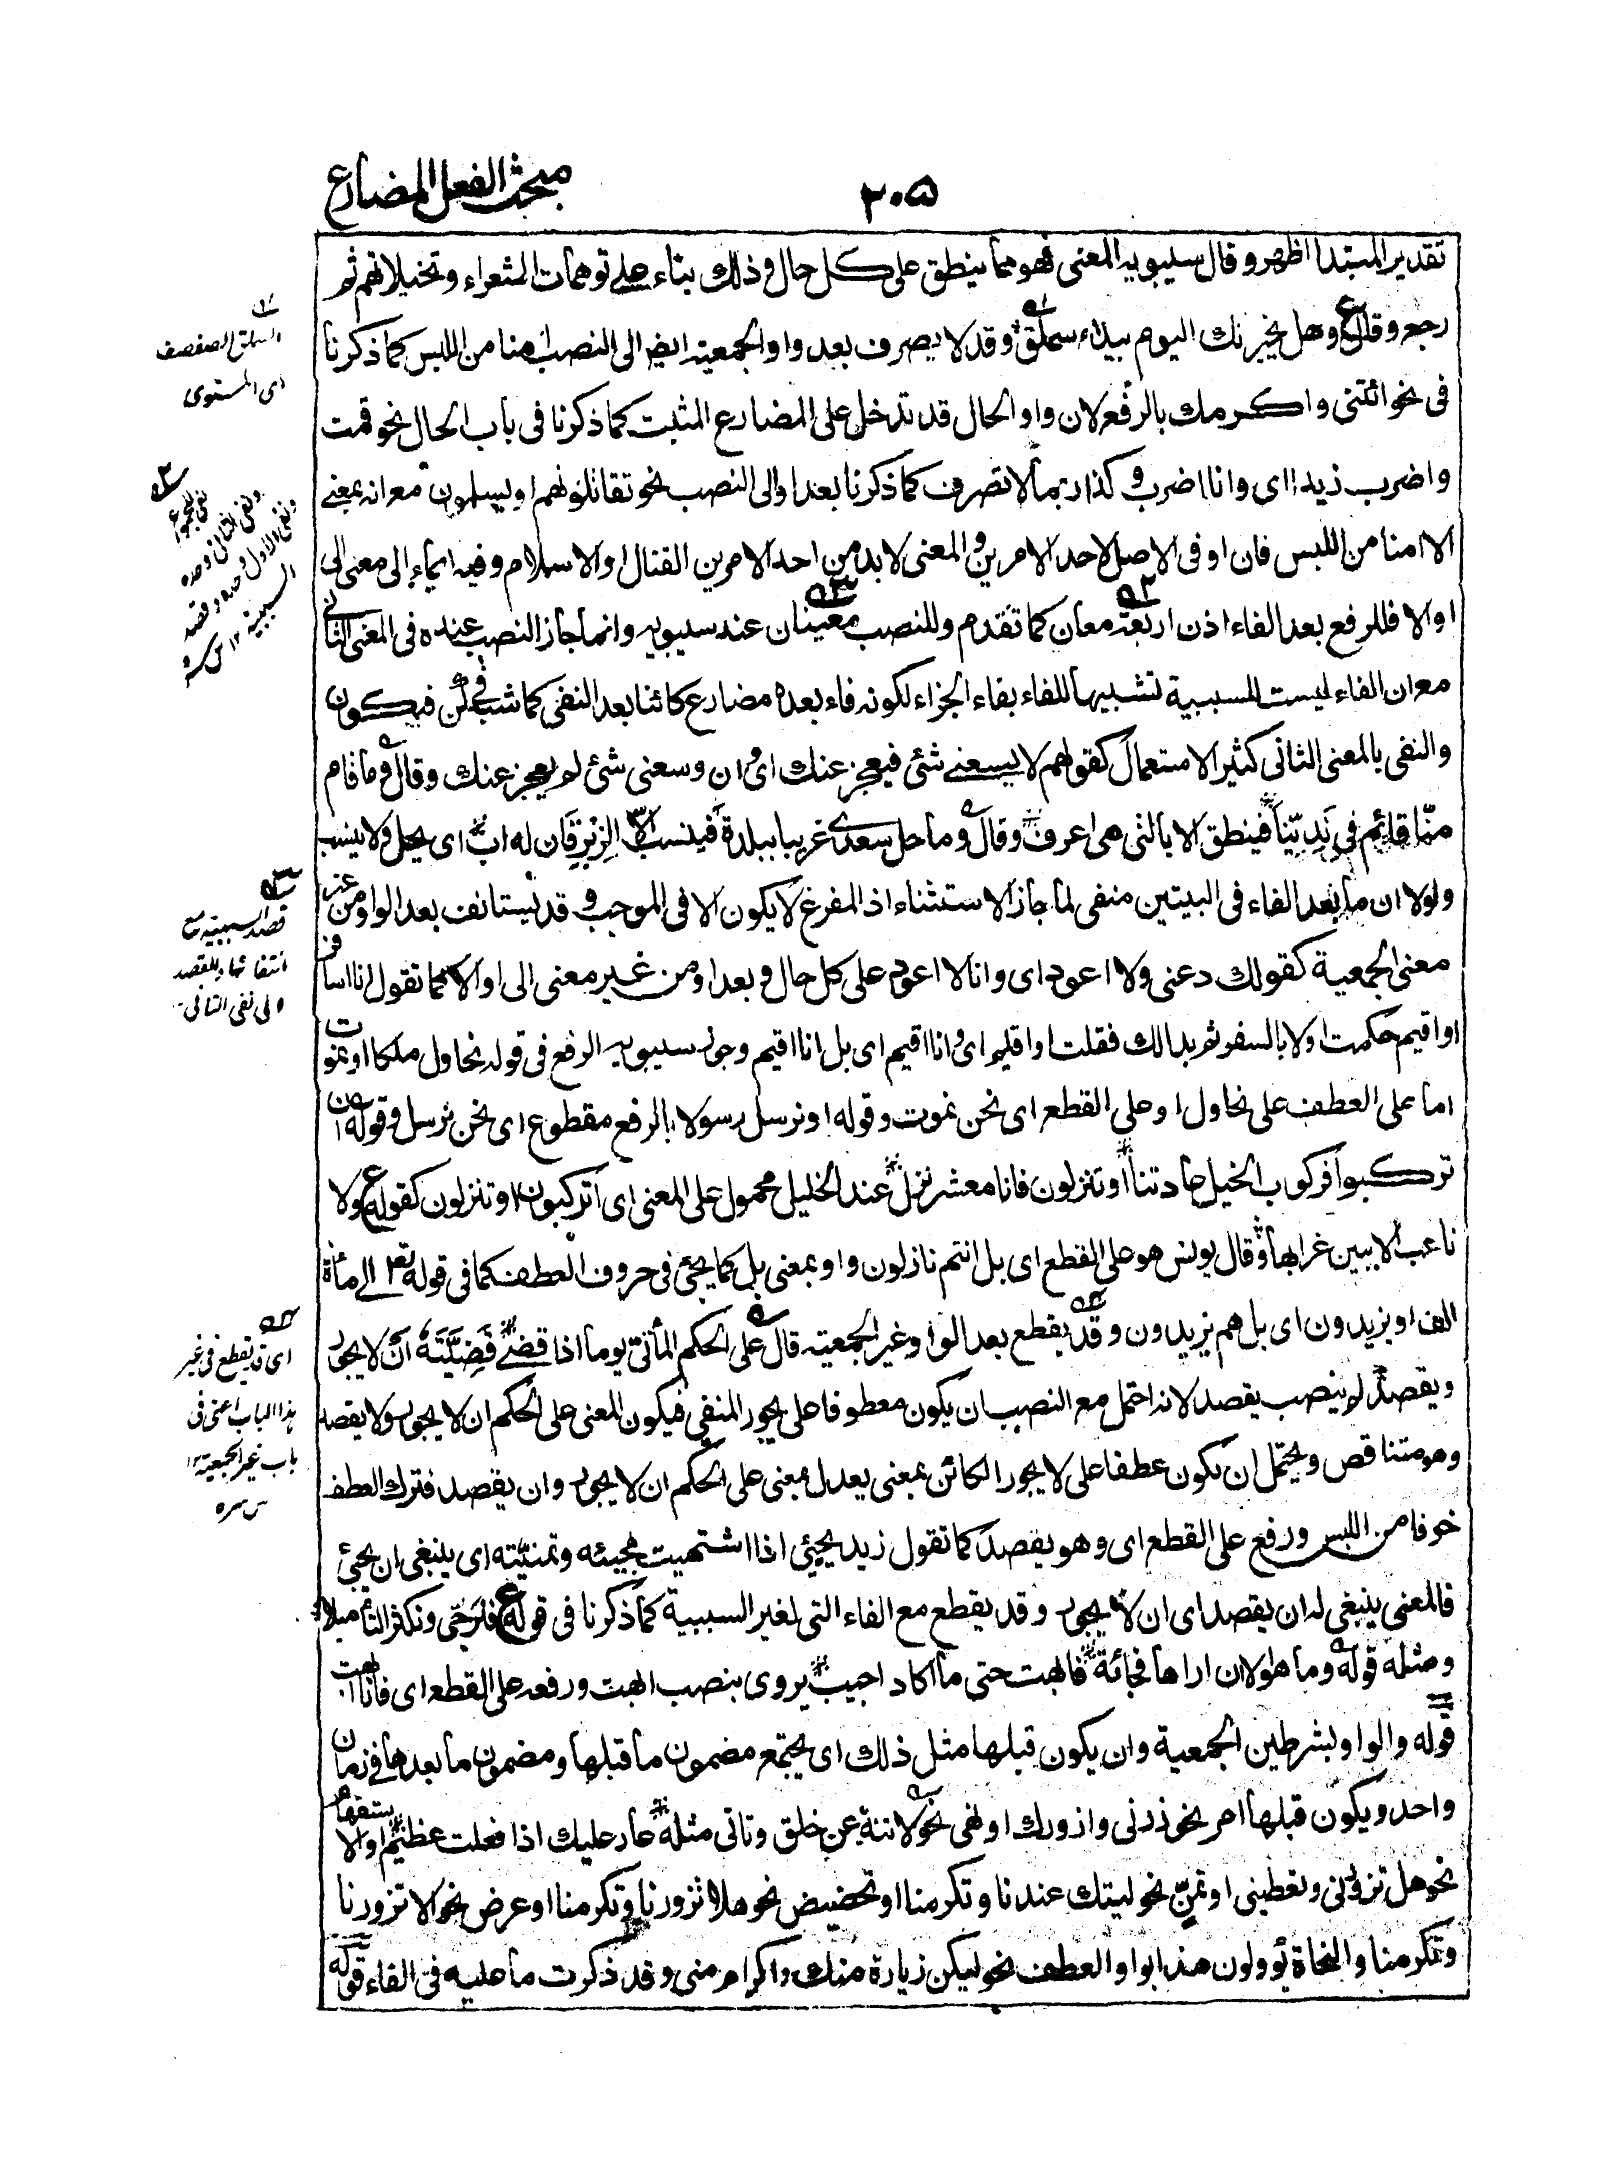 مبحث الفعل المضارع
٢٠٥
تقدير المبتدا اظهر وقال سيبويه المعنى فهو مما ينطق على كل حال وذلك بناء على توهمات الشعراء وتخيلاتهم ثم
رجع وقال ع وهل يخبرنك اليوم بيداء سملق وقد لا يصرف بعد واو الجمعية ايضا الى النصب امنا من اللبس كما ذكرنا
فى نحو ائتنى واكرمك بالرفع لان واو الحال قد تدخل على المضارع المثبت كما ذكرنا فى باب الحال نحو قمت
واضرب زيدا اى وانا اضرب وكذا ربما لا تصرف كما ذكرنا بعد او الى النصب نحو تقاتلونهم او يسلمون مع انه بمعنى
الا امنا من اللبس فان او فى الاصل لاحد الامرين والمعنى لا بد من احد الامرين القتال او الاسلام وفيه ايماء الى معنى الى
او الا فللرفع بعد الفاء اذن اربعة معان كما تقدم وللنصب معنيان عند سيبويه وانما جاز النصب عنده فى المعنى الثانى
مع ان الفاء ليست للسببية تشبيها للفاء بفاء الجزاء لكونه فاء بعده مضارع كائنا بعد النفى كما شبه فى كن فيكون
والنفى بالمعنى الثانى كثير الاستعمال كقولهم لا يسعنى شئ فيعجز عنك اى وان وسعنى شئ لم يعجز عنك وقال وما قام
منّا قائم فى نَدِيّنا فينطق الا بالتى هى اعرف وقال وما حل سعدى غريبا ببلدة فينسب الا الزبرقان له اب اى يحل ولا ينسب
ولولا ان ما بعد الفاء فى البيتين منفى لما جاز الاستثناء اذ المفرغ لا يكون الا فى الموجب وقد يستانف بعد الواو من غير
معنى الجمعية كقولك دعنى ولا اعود اى وانا لا اعود على كل حال وبعد او من غير معنى الى او الا كما تقول انا اسافر
او اقيم حكمت اولا بالسفر ثم بدا لك فقلت او اقيم اى وانا اقيم اى بل انا اقيم وجوز سيبويه الرفع فى قوله نحاول ملكا او نموت
اما على العطف على نحاول او على القطع اى نحن نموت وقوله او نرسل رسولا بالرفع مقطوع اى نحن نرسل وقوله ان
تركبوا فركوب الخيل عادتنا او تنزلون فانا معشر نزل عند الخليل محمول على المعنى اى اتركبون او تنزلون كقوله ع ولا
ناعب الا ببين غرابها وقال يونس هو على القطع اى بل انتم نازلون واو بمعنى بل كما يجئ فى حروف العطف كما فى قوله تعالى الى مائة
الف او يزيدون اى بل هم يزيدون وقد يقطع بعد الواو غير الجمعية قال على الحكم المأتى يوما اذا قضى قَضِيَّتَهٗ ان لا يجور
ويقصد لم ينصب يقصد لانه احتمل مع النصب ان يكون معطوفا على يجور المنفى فيكون المعنى على الحكم ان لا يجور ولا يقصد
وهو متناقص ويحتمل ان يكون عطفا على لا يجور الكائن بمعنى يعدل بمعنى على الحكم ان لا يجور وان يقصد فترك العطف
خوفا من اللبس ورفع على القطع اى وهو يقصد كما تقول زيد يجيئ اذا اشتهيت مجيئه وتمنيته اى ينبغى ان يجئ
فالمعنى ينبغى له ان يقصد اى ان لا يجور وقد يقطع مع الفاء التى لغير السببية كما ذكرنا فى قوله ع فنرجّى ونكثر التاميلا
ومثله قوله وما هو الا ان اراها فجائة فابهت حتى ما اكاد اجيب يروى بنصب ابهت ورفعه على القطع اى فانا ابهت
قوله والواو بشرطين الجمعية وان يكون قبلها مثل ذلك اى يجتمع مضمون ما قبلها ومضمون ما بعدها فى زمان
واحد ويكون قبلها امر نحو زدنى وازورك او نهى نحو لا تنه عن خلق وتاتى مثله عار عليك اذا فعلت عظيم او استفهام
نحو هل تزورنى وتعطينى او تمنٍّ نحو ليتك عندنا وتكرمنا او تحضيض نحو هلا تزورنا وتكرمنا او عرض نحو الا تزورنا
وتكرمنا والنحاة يؤولون هذا بواو العطف نحو ليكن زيارة منك واكرام منى وقد ذكرت ما عليه فى الفاء قوله
السملق الصفصف
اى المستوى
نفى المجموع
ونفى الثانى وحده
ونفى الاول وحده وقصد
السببية ١٢
قصد السببية مع
انتفائها والقصد
الى نفى الثانى
اى قد يقطع فى غير
هذا الباب اعنى فى
باب غير الجمعية ١٢